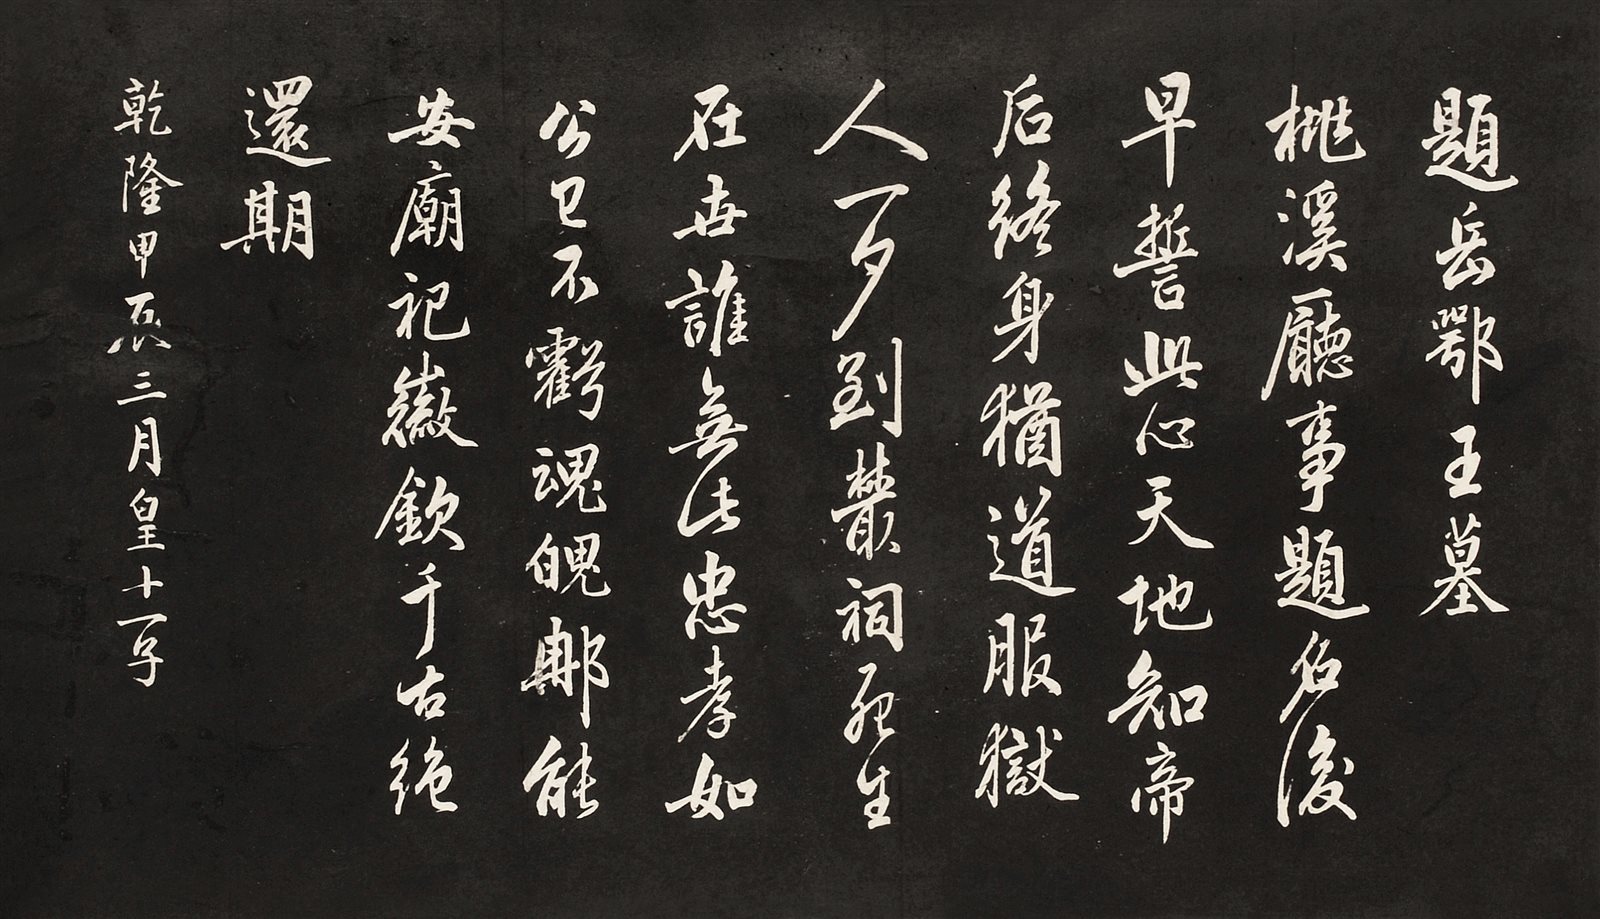 題岳鄂王墓
桃溪廳事題名後
早誓此心天地知帝
后終身猶道服獄
人一夕到叢祠死生
在世誰無此忠孝如
公已不虧魂魄那能
安廟祀徽欽千古絶
還期
乾隆甲辰三月皇十一子